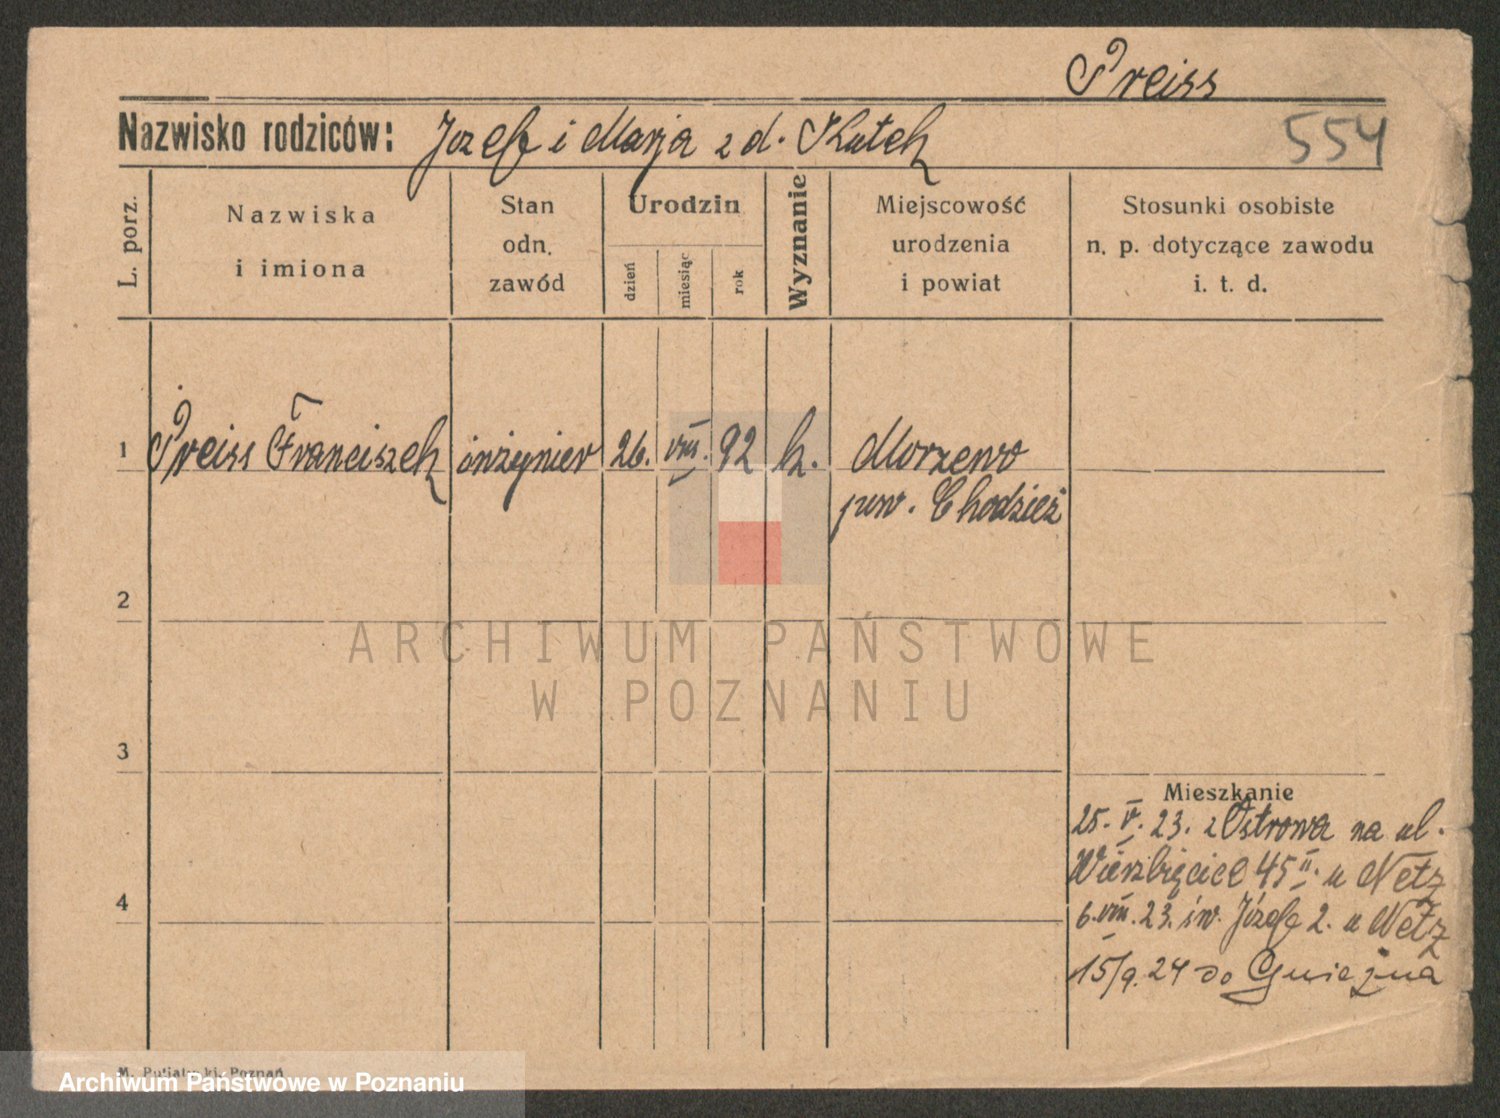 Preiss
Nazwisko rodziców: Józef i Marja z d. Kutek
554
L. porz.
Nazwiska
i imiona
Stan
odn.
zawód
Urodzin
dzień
miesiąc
rok
Wyznanie
Miejscowość
urodzenia
i powiat
Stosunki osobiste
n. p. dotyczące zawodu
i. t. d.
1 Preiss Franciszek inżynier 26. VIII. 92 k. Morzewo
pow. Chodzież
2
ARCHIWUM PAŃSTWOWE
W POZNANIU
3
Mieszkanie
25. V. 23. z Ostrowa na ul.
Wierzbięcice 45 II. u Netz
4
6. VIII. 23. św. Józefa 2. u Netz
15/9. 24 do Gniezna
M. Putiatycki, Poznań
Archiwum Państwowe w Poznaniu